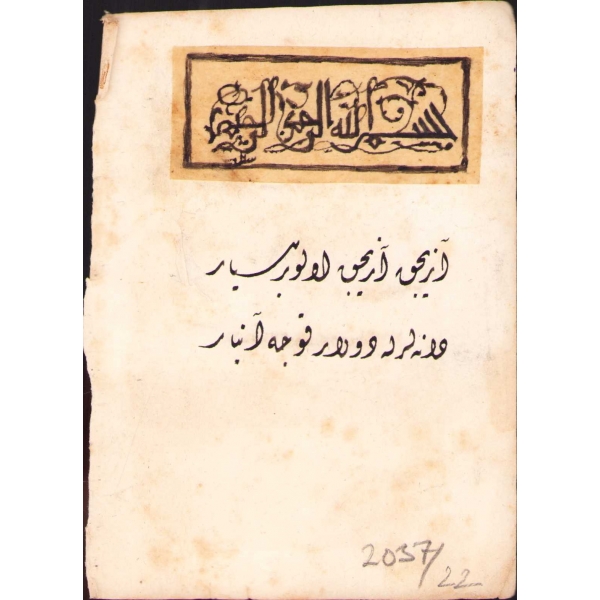 بسم الله الرحمن الرحيم
آزيجق آزيجق اولور بسيار
دانه لرله دولار قوجه آنبار
2037/22